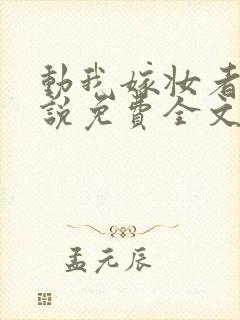 動我嫁妝者
說免費全文
孟元辰